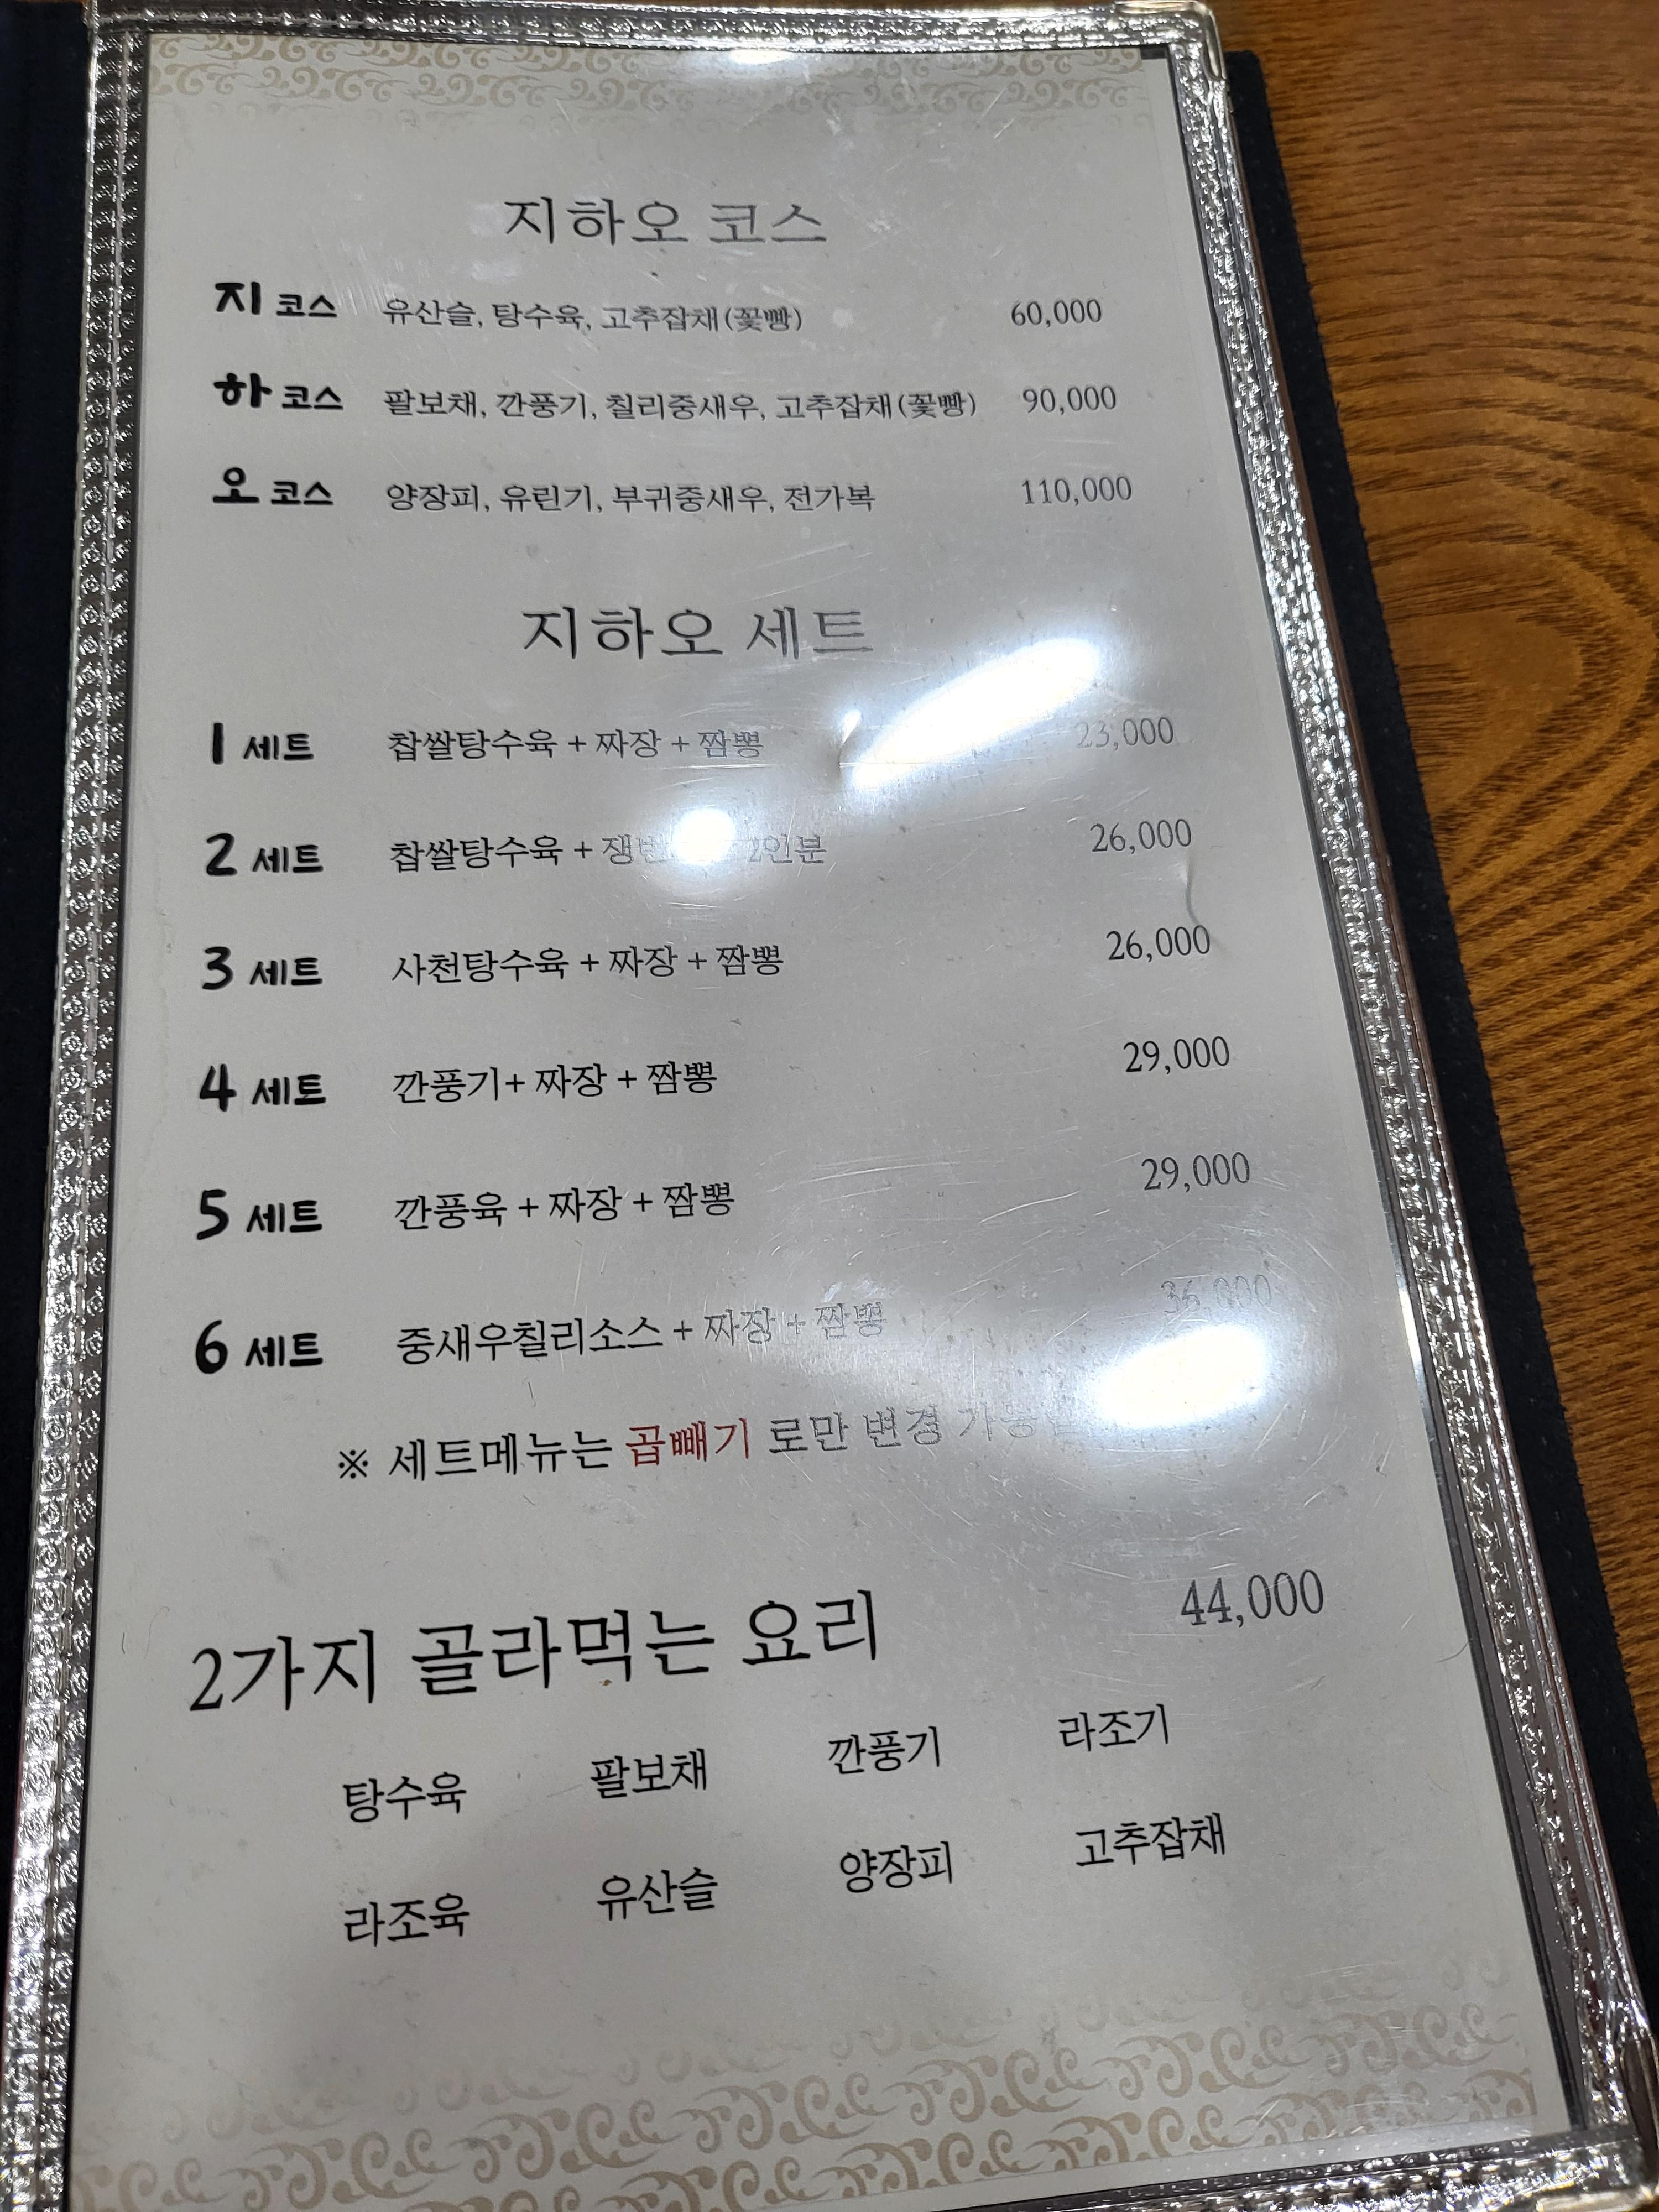 지하오 코스
지 코스 유산슬, 탕수육, 고추잡채(꽃빵) 60,000
하 코스 팔보채, 깐풍기, 칠리중새우, 고추잡채(꽃빵) 90,000
오 코스 양장피, 유린기, 부귀중새우, 전가복 110,000
지하오 세트
1 세트 찹쌀탕수육 + 짜장 + 짬뽕 23,000
2 세트 찹쌀탕수육 + 2인분 26,000
3 세트 사천탕수육 + 짜장 + 짬뽕 26,000
4 세트 깐풍기+ 짜장 + 짬뽕 29,000
5 세트 깐풍육 + 짜장 + 짬뽕 29,000
6 세트 중새우칠리소스 + 짜장 + 짬뽕
※ 세트메뉴는 곱빼기 로만 변경
2가지 골라먹는 요리 44,000
탕수육 팔보채 깐풍기 라조기
라조육 유산슬 양장피 고추잡채